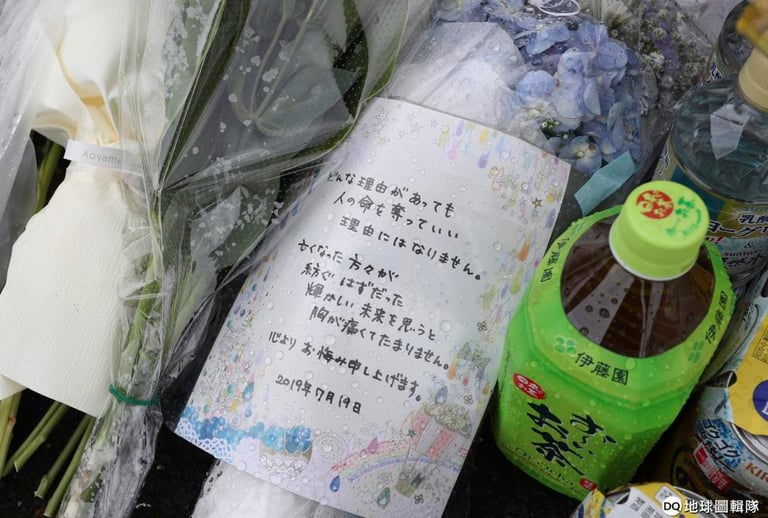 Aoyama
どんな理由があっても
人の命を奪っていい
理由にはなりません。
亡くなった方々が
紡ぐはずだった
輝かしい未来を思うと
胸が痛くてたまりません。
心よりお悔み申し上げます。
2019年7月19日
伊藤園
伊藤園
お〜い
お茶
乳酸
ヨーグ
DQ 地球圖輯隊